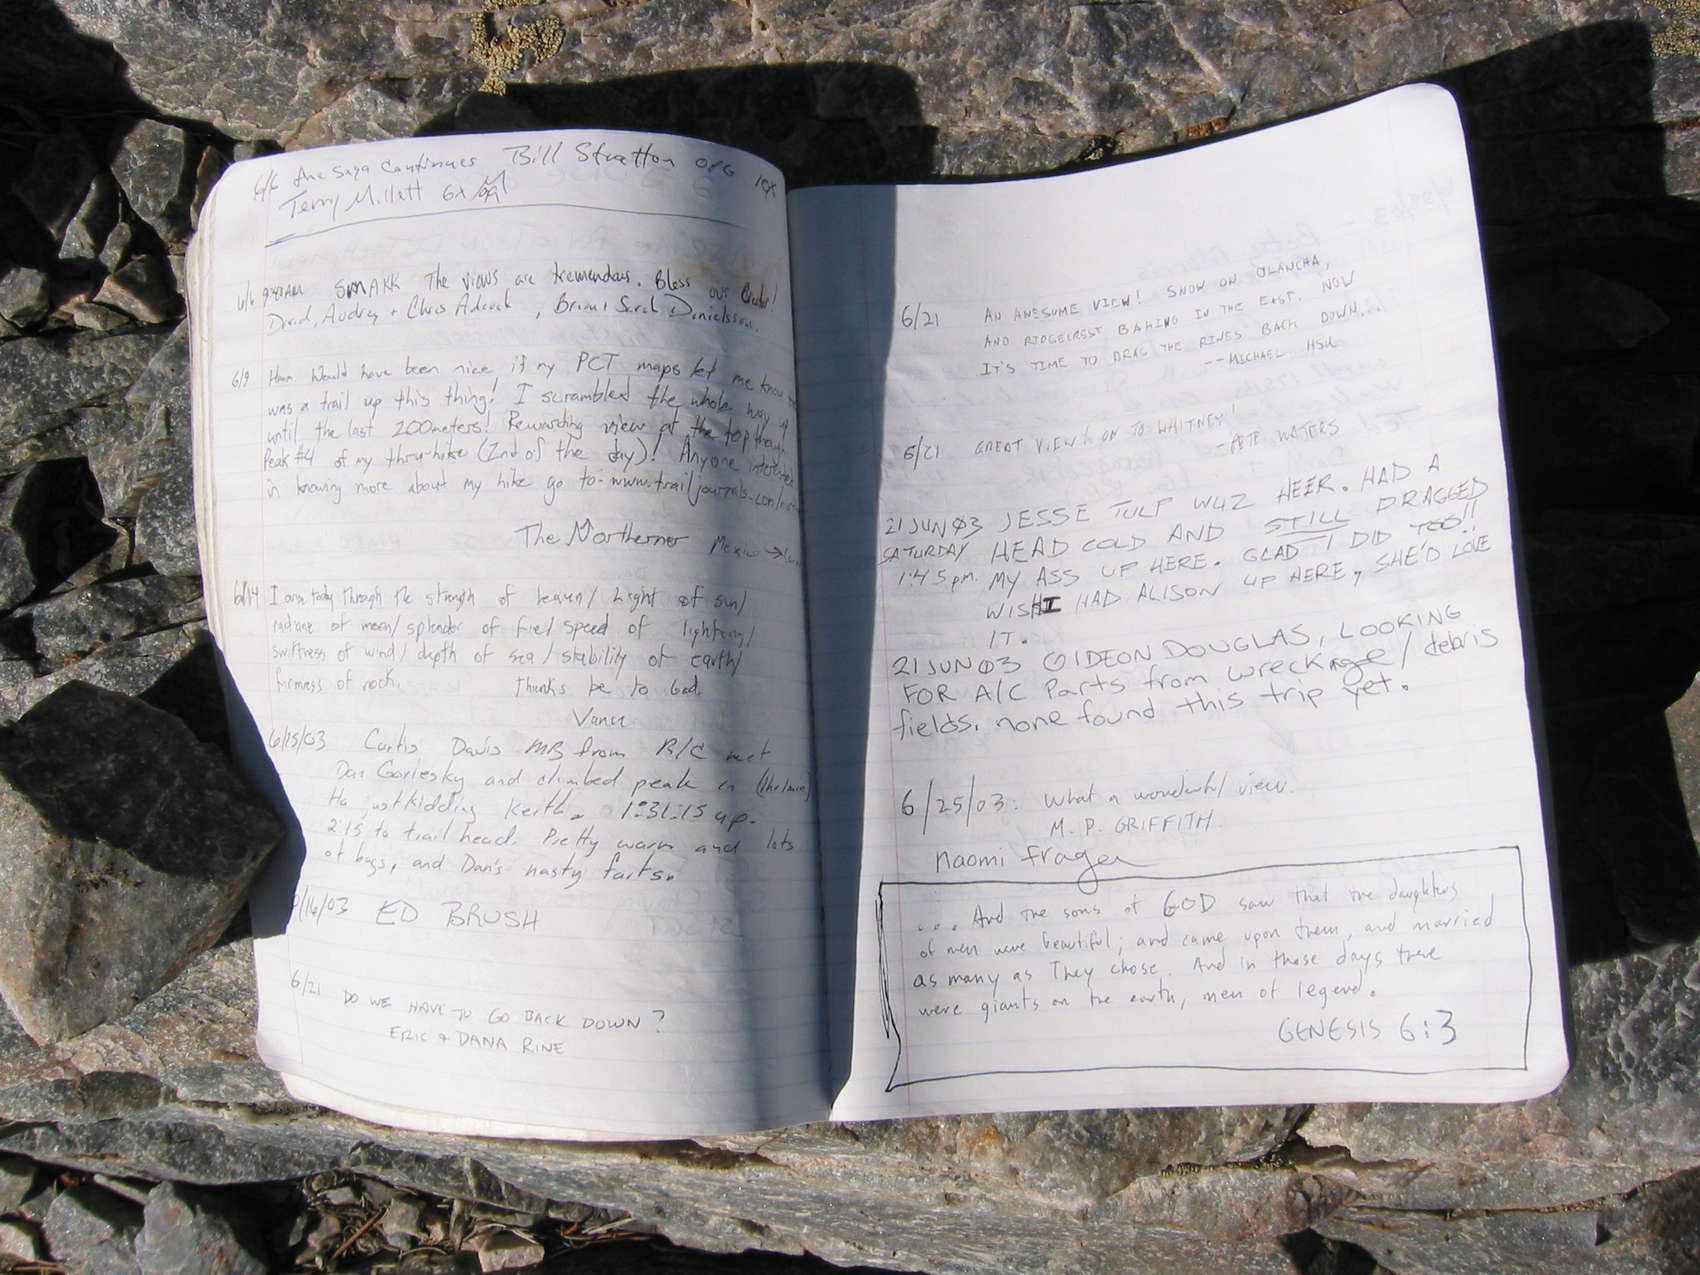 6/6 The Saga Continues Bill Stratton OPG 10X
Terry Millatt 6x
6/6 9:40AM SMAKK The views are tremendous. Bless our
David, Audrey + Chris Adcock, Brian + Sarah Danielsson.
6/9 Hmm. Would have been nice if my PCT maps let me know
was a trail up this thing! I scrambled the whole way up
until the last 200 meters! Rewarding view at the top though
Peak #4 of my thru-hike (2nd of the day)! Anyone interested
in knowing more about my hike go to - www.trailjournals.com/
The Northerner Mexico →
6/14 I arise today through the strength of heaven/ Light of sun/
radiance of moon/ splendor of fire/ speed of lightning/
swiftness of wind/ depth of sea/ stability of earth/
firmness of rock. Thanks be to God.
Vance
6/15/03 Curtis Davis MB from R/C met
Dan Goriesky and climbed peak in
Ha just kidding Keith. 1:31:15 up.
2:15 to trail head. Pretty warm and lots
of bugs, and Dan's nasty farts.
/16/03 ED BRUSH
6/21 DO WE HAVE TO GO BACK DOWN?
ERIC + DANA RINE
6/21 AN AWESOME VIEW! SNOW ON OLANCHA,
AND RIDGECREST BAKING IN THE EAST. NOW
IT'S TIME TO DRAG THE RINES BACK DOWN...
--MICHAEL HSU
6/21 GREAT VIEW! ON TO WHITNEY!
-PETE WATERS
21 JUN 03 JESSE TULP WUZ HEER. HAD A
SATURDAY HEAD COLD AND STILL DRAGGED
1:45 pm. MY ASS UP HERE. GLAD I DID TOO!!
WISH I HAD ALISON UP HERE, SHE'D LOVE
IT.
21 JUN 03 GIDEON DOUGLAS, LOOKING
FOR A/C Parts from wreckage/debris
fields, none found this trip yet.
6/25/03: What a wonderful view.
M. P. GRIFFITH.
naomi frager
... And the sons of GOD saw that the daughters
of men were beautiful; and came upon them, and married
as many as They chose. And in those days there
were giants on the earth, men of legend.
GENESIS 6:3